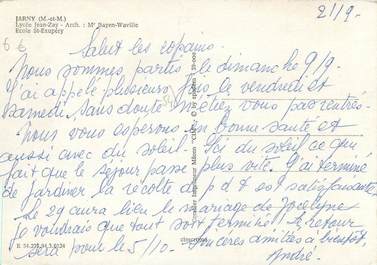 JARNY (M.-et-M.)
Lycée Jean-Zay - Arch. : Mr Bayen-Waville
Ecole St-Exupéry
21/9.
6 €
Salut les copains.
Nous sommes partis le dimanche 9/9.
J'ai appelé plusieurs fois le vendredi et
samedi. Sans doute n'étiez vous pas rentrés.
Nous vous esperons en bonne santé et
aussi avec du soleil. Ici du soleil ce qui
fait que le sejour passe plus vite. J'ai terminé
de jardiner la récolte de p d t est satisfaisante.
Le 29 aura lieu le mariage de Jocelyne
je voudrais que tout soit terminé. Le retour
sera pour le 5/10. Sincères amitiés à bientôt
André.